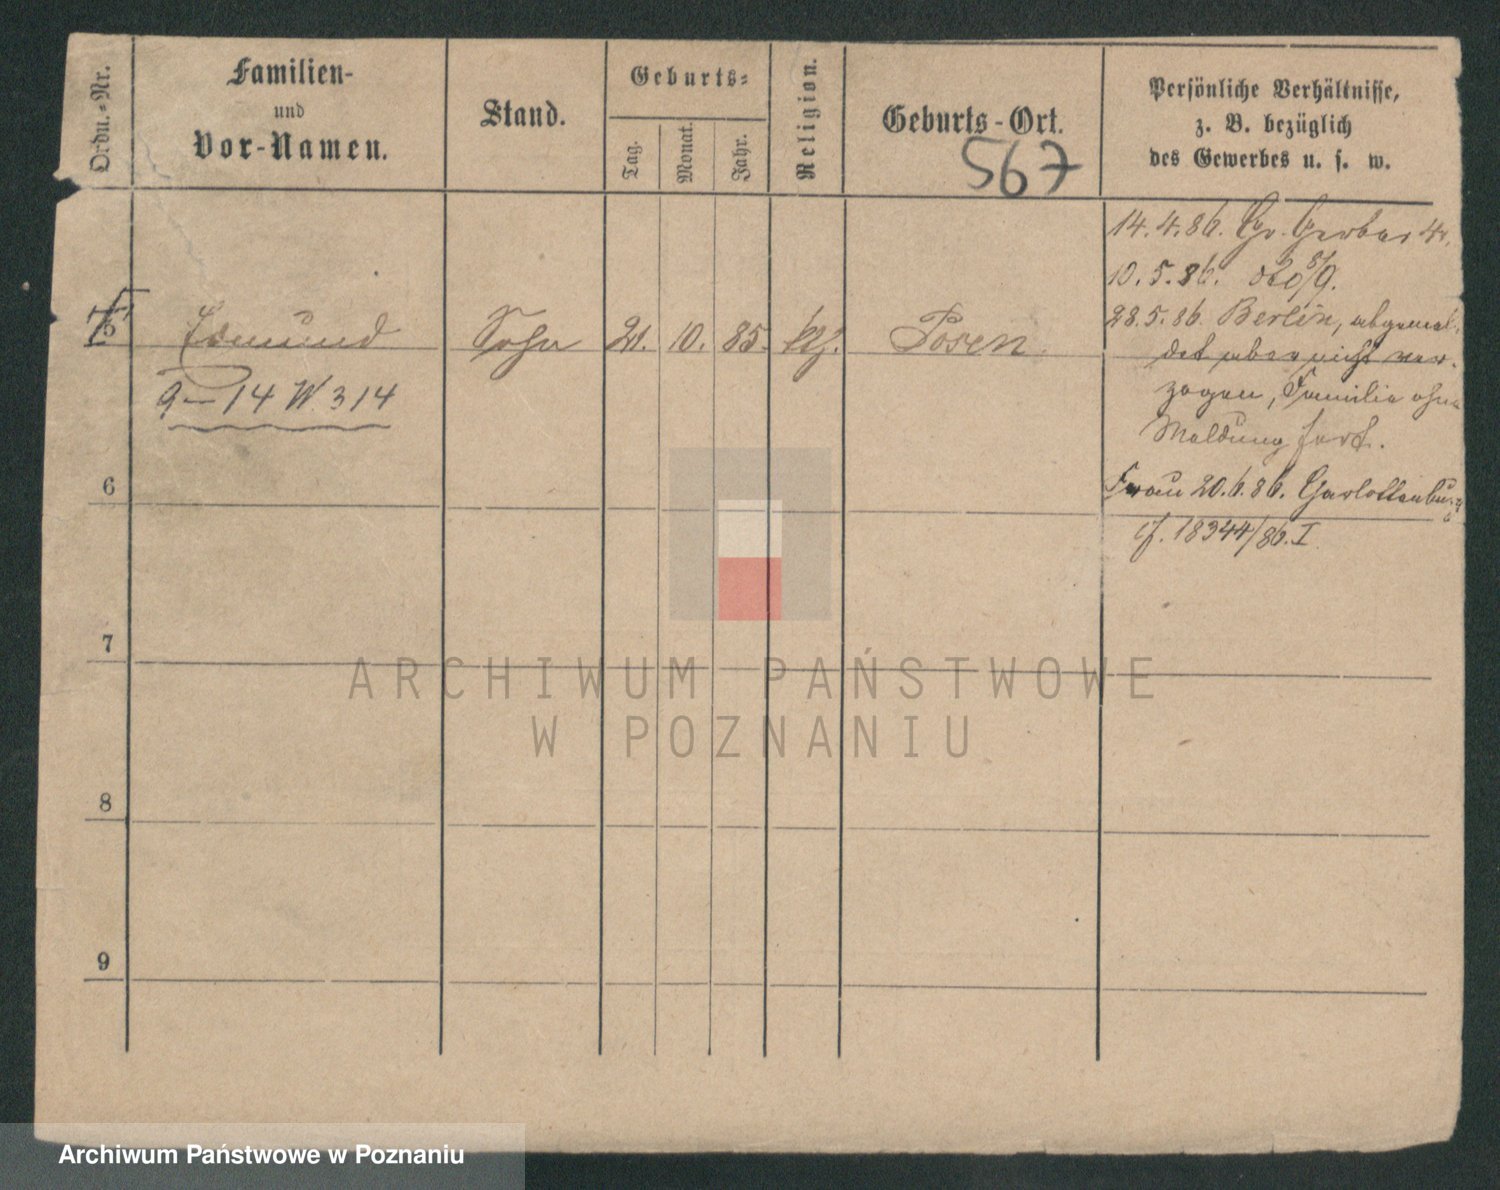 Ordn.-Nr.
Familien-
und
Vor-Namen.
Stand.
Geburts-
Tag.
Monat.
Jahr.
Religion.
Geburts-Ort.
567
Persönliche Verhältnisse,
z. B. bezüglich
des Gewerbes u. s. w.
14.4.86. Gr. Gerber 40.
10.5.86. do 8/9.
5 Edmund Sohn 21. 10. 85. kth. Posen
28.5.86. Berlin, abgemel-
det aber nicht ver-
zogen, Familie ohne
Meldung fort.
9–14 W. 314
6
Frau 20.6.86. Charlottenburg
cf. 18344/86. I
7
8
9
ARCHIWUM PAŃSTWOWE
W POZNANIU
Archiwum Państwowe w Poznaniu